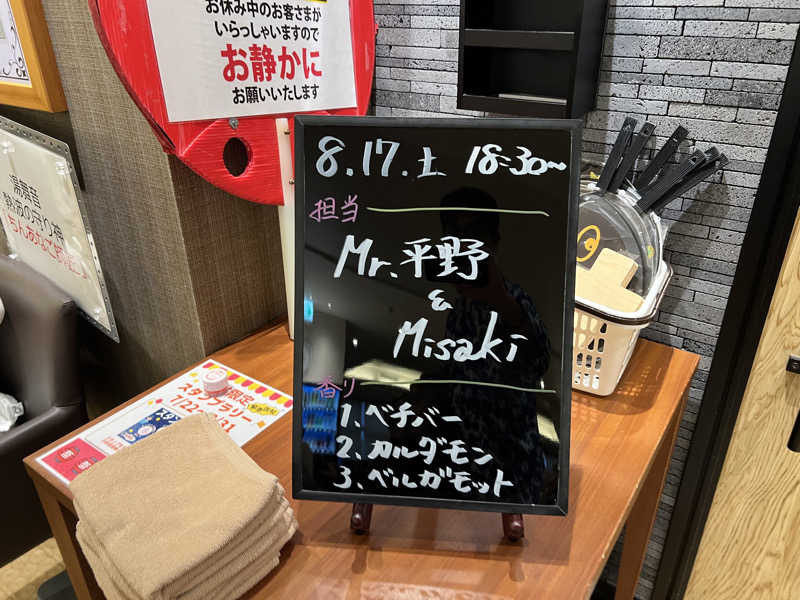 お休み中のお客さまが
いらっしゃいますので
お静かに
お願いいたします
8.17.土 18:30~
担当
Mr.平野
&
Misaki
香り
1、ベチバー
2、カルダモン
3、ベルガモット
限定
スタンプラリー
7/22